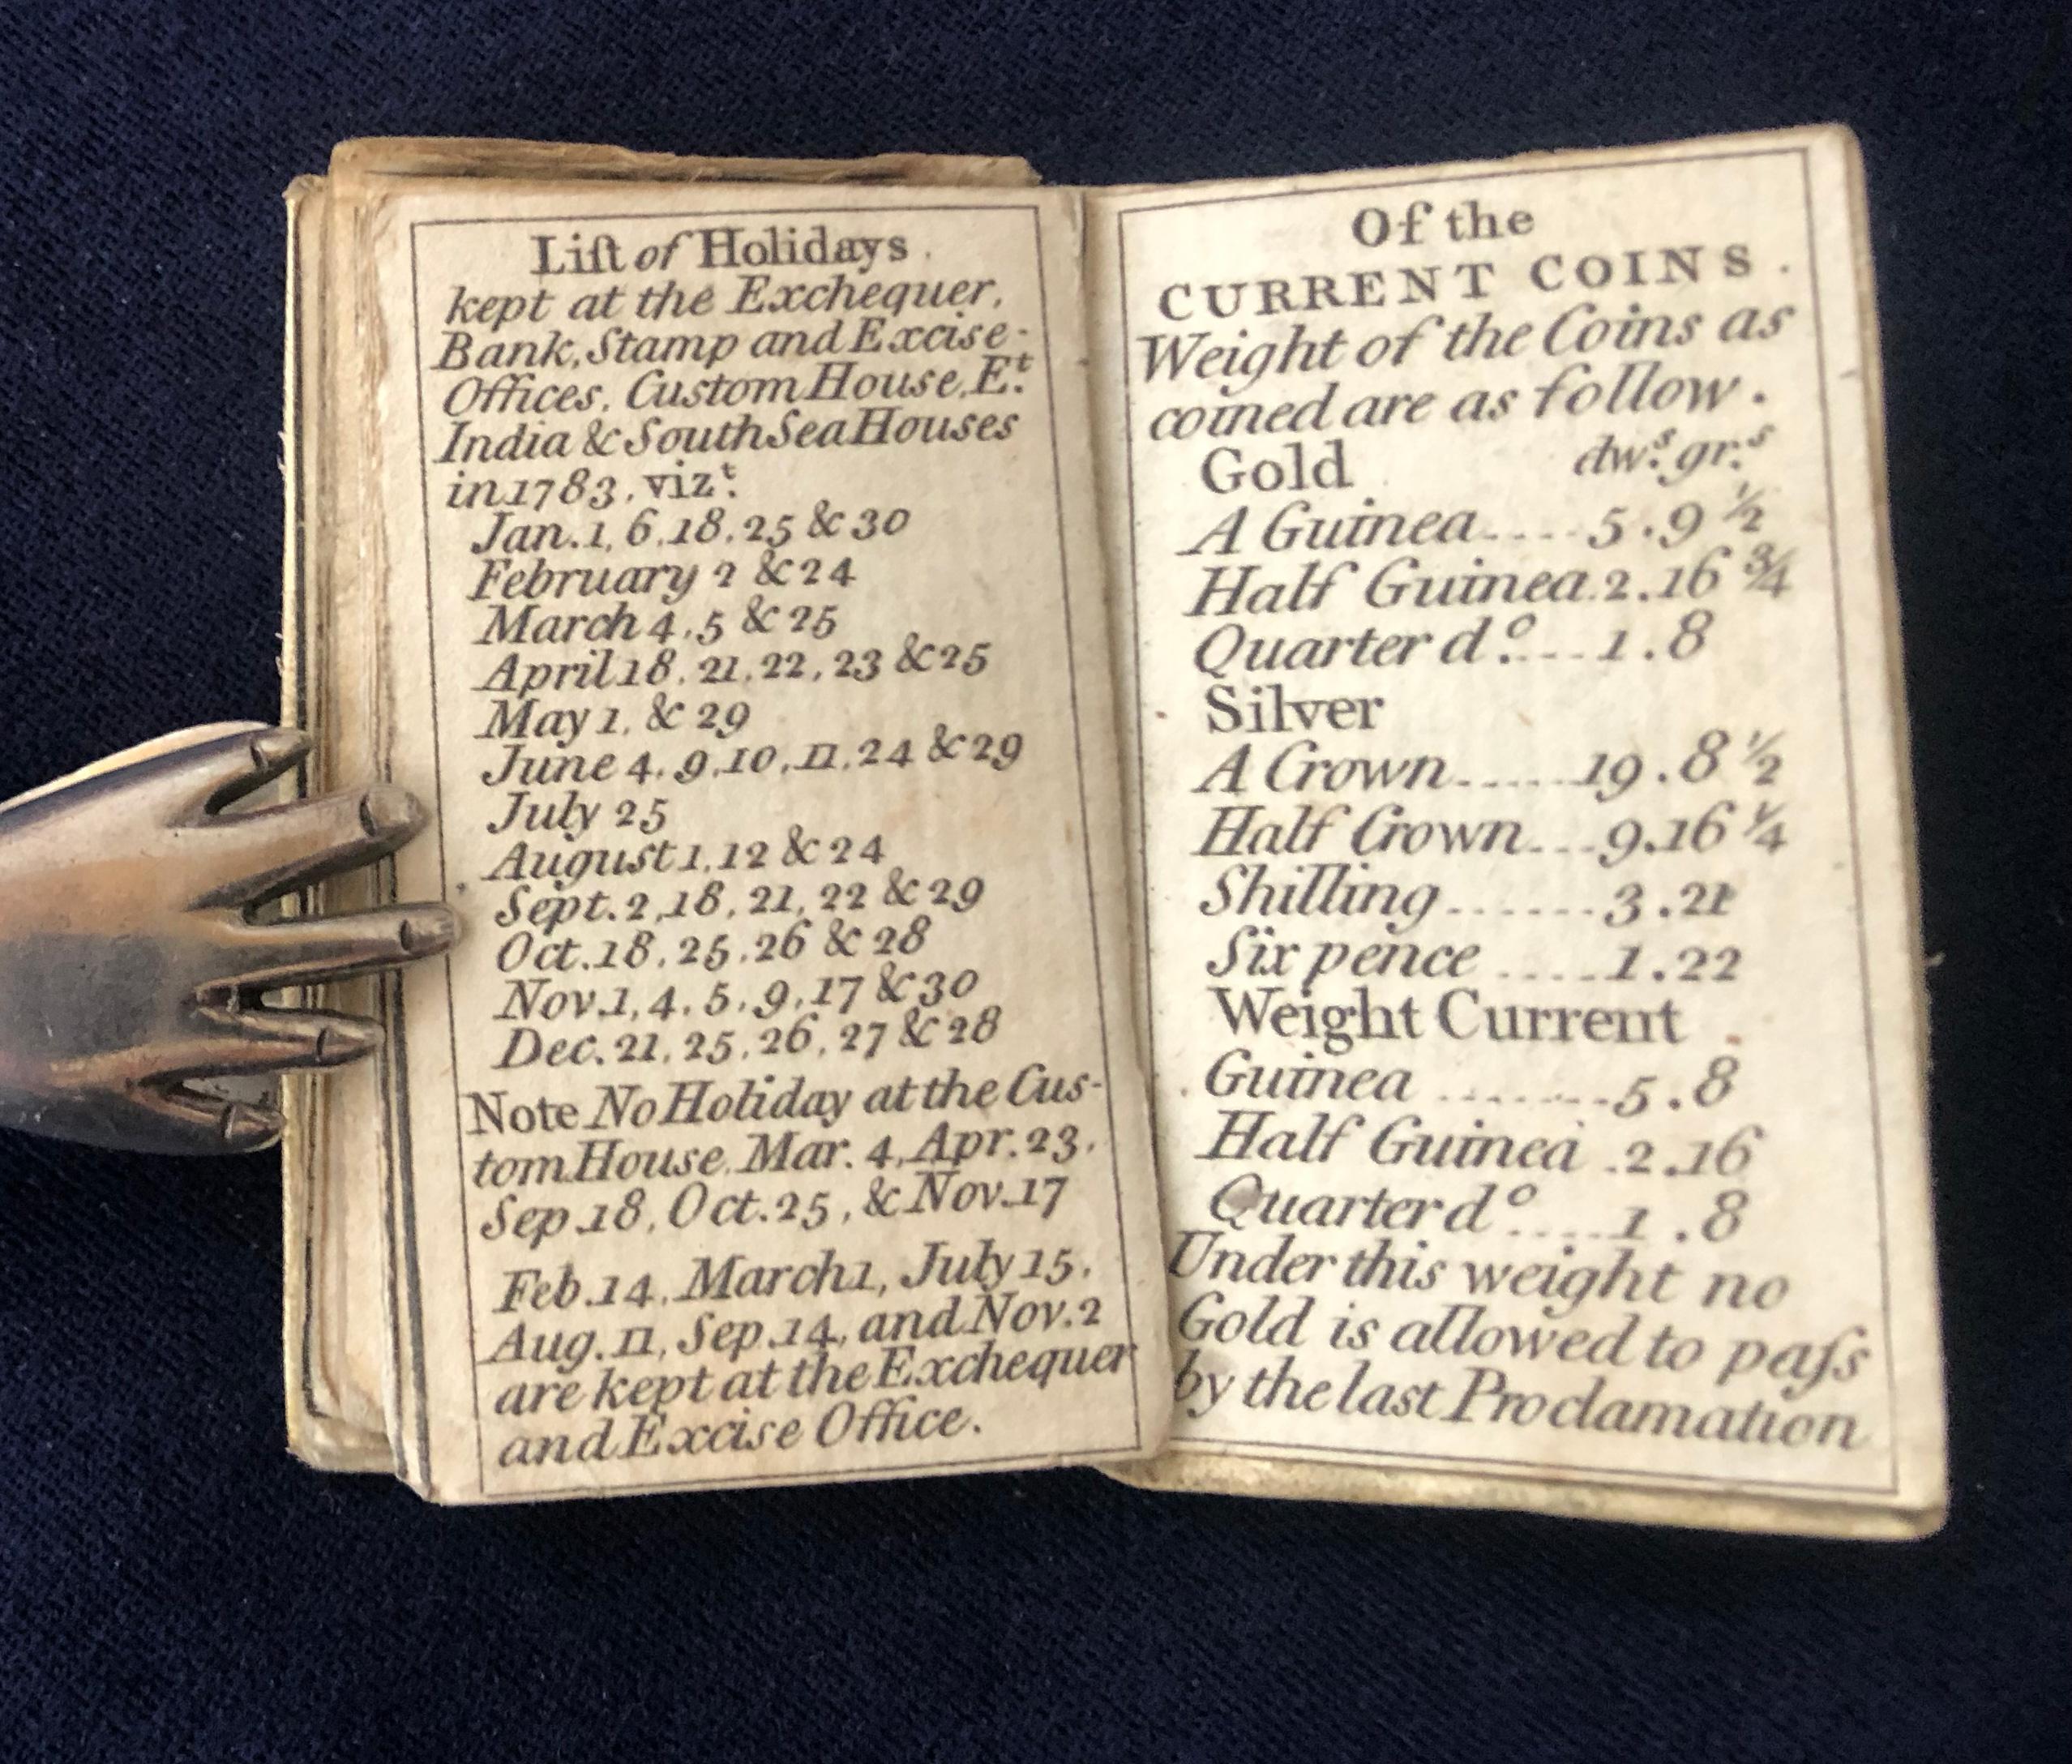 Liſt of Holidays.
kept at the Exchequer,
Bank, Stamp and Excise-
Offices, Custom House, Eᵗ.
India & South Sea Houses
in 1783, vizᵗ.
Jan. 1, 6, 18, 25 & 30
February 2 & 24
March 4, 5 & 25
April 18, 21, 22, 23 & 25
May 1, & 29
June 4, 9, 10, 11, 24 & 29
July 25
August 1, 12 & 24
Sept. 2, 18, 21, 22 & 29
Oct. 18, 25, 26 & 28
Nov. 1, 4, 5, 9, 17 & 30
Dec. 21, 25, 26, 27 & 28
Note No Holiday at the Cus-
tom House, Mar. 4, Apr. 23,
Sep. 18, Oct. 25, & Nov. 17
Feb. 14, March 1, July 15,
Aug. 11, Sep. 14, and Nov. 2
are kept at the Exchequer
and Excise Office.
Of the
CURRENT COINS.
Weight of the Coins as
coined are as follow.
Gold dwˢ. grˢ.
A Guinea.....5.9 ½
Half Guinea.2.16 ¾
Quarter dº....1.8
Silver
A Crown.....19.8 ½
Half Crown...9.16 ¼
Shilling.......3.21
Six pence.....1.22
Weight Current
Guinea........5.8
Half Guinea.2.16
Quarter dº....1.8
Under this weight no
Gold is allowed to paſs
by the last Proclamation